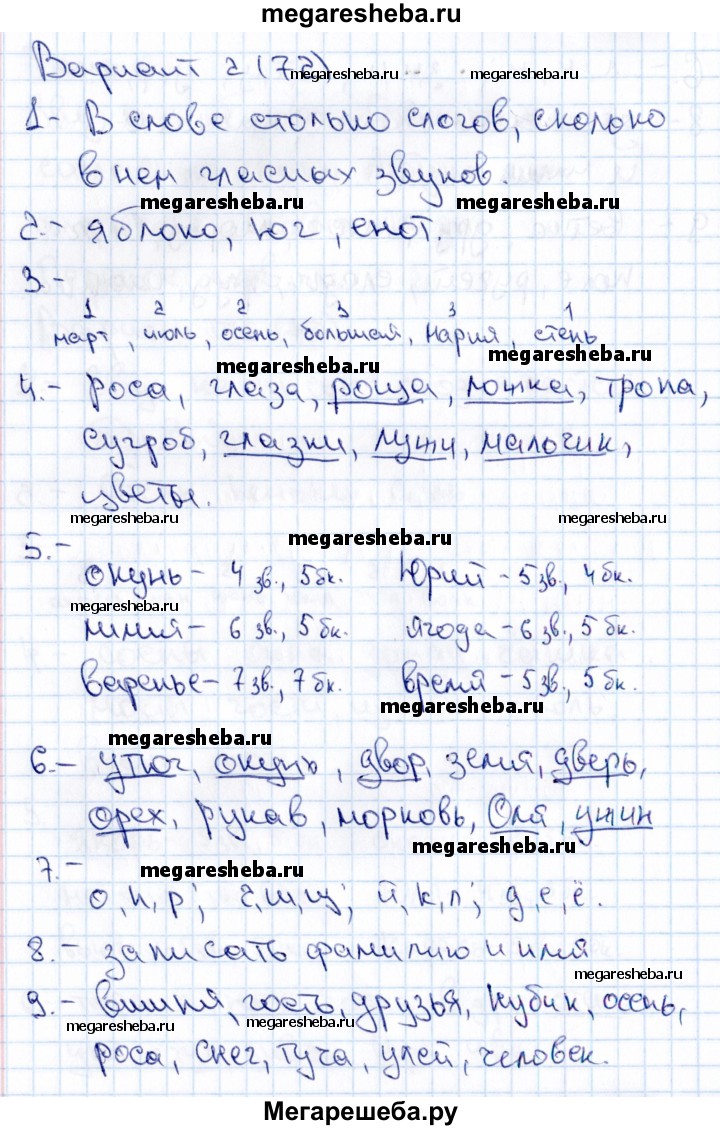 megaresheba.ru
Вариант 2 (72)
megaresheba.ru megaresheba.ru
1- В слове столько слогов, сколько
в нем гласных звуков.
megaresheba.ru megaresheba.ru
2.- яблоко, юг, енот.
3.-
1 2 2 3 3 1
март, июль, осень, большая, Мария, степь
megaresheba.ru megaresheba.ru
4.- Роса, глаза, роща, ложка, тропа,
сугроб, глазки, лужи, мальчик,
цветы.
megaresheba.ru megaresheba.ru
megaresheba.ru
5.-
окунь - 4 зв., 5 бк. Юрий - 5 зв., 4 бк.
линия - 6 зв., 5 бк. ягода - 6 зв., 5 бк.
варенье - 7 зв., 7 бк. время - 5 зв., 5 бк.
megaresheba.ru
megaresheba.ru
6.- утюг, окунь, двор, земля, дверь,
орех, рукав, морковь, Оля, ужин
megaresheba.ru
7.-
megaresheba.ru
о, п, р; ш, щ; й, к, л; д, е, ё.
8.- записать фамилию и имя
megaresheba.ru
9.- вишня, гость, друзья, кубик, осень,
megaresheba.ru megaresheba.ru
роса, снег, туча, улей, человек.
Мегарешеба.ру